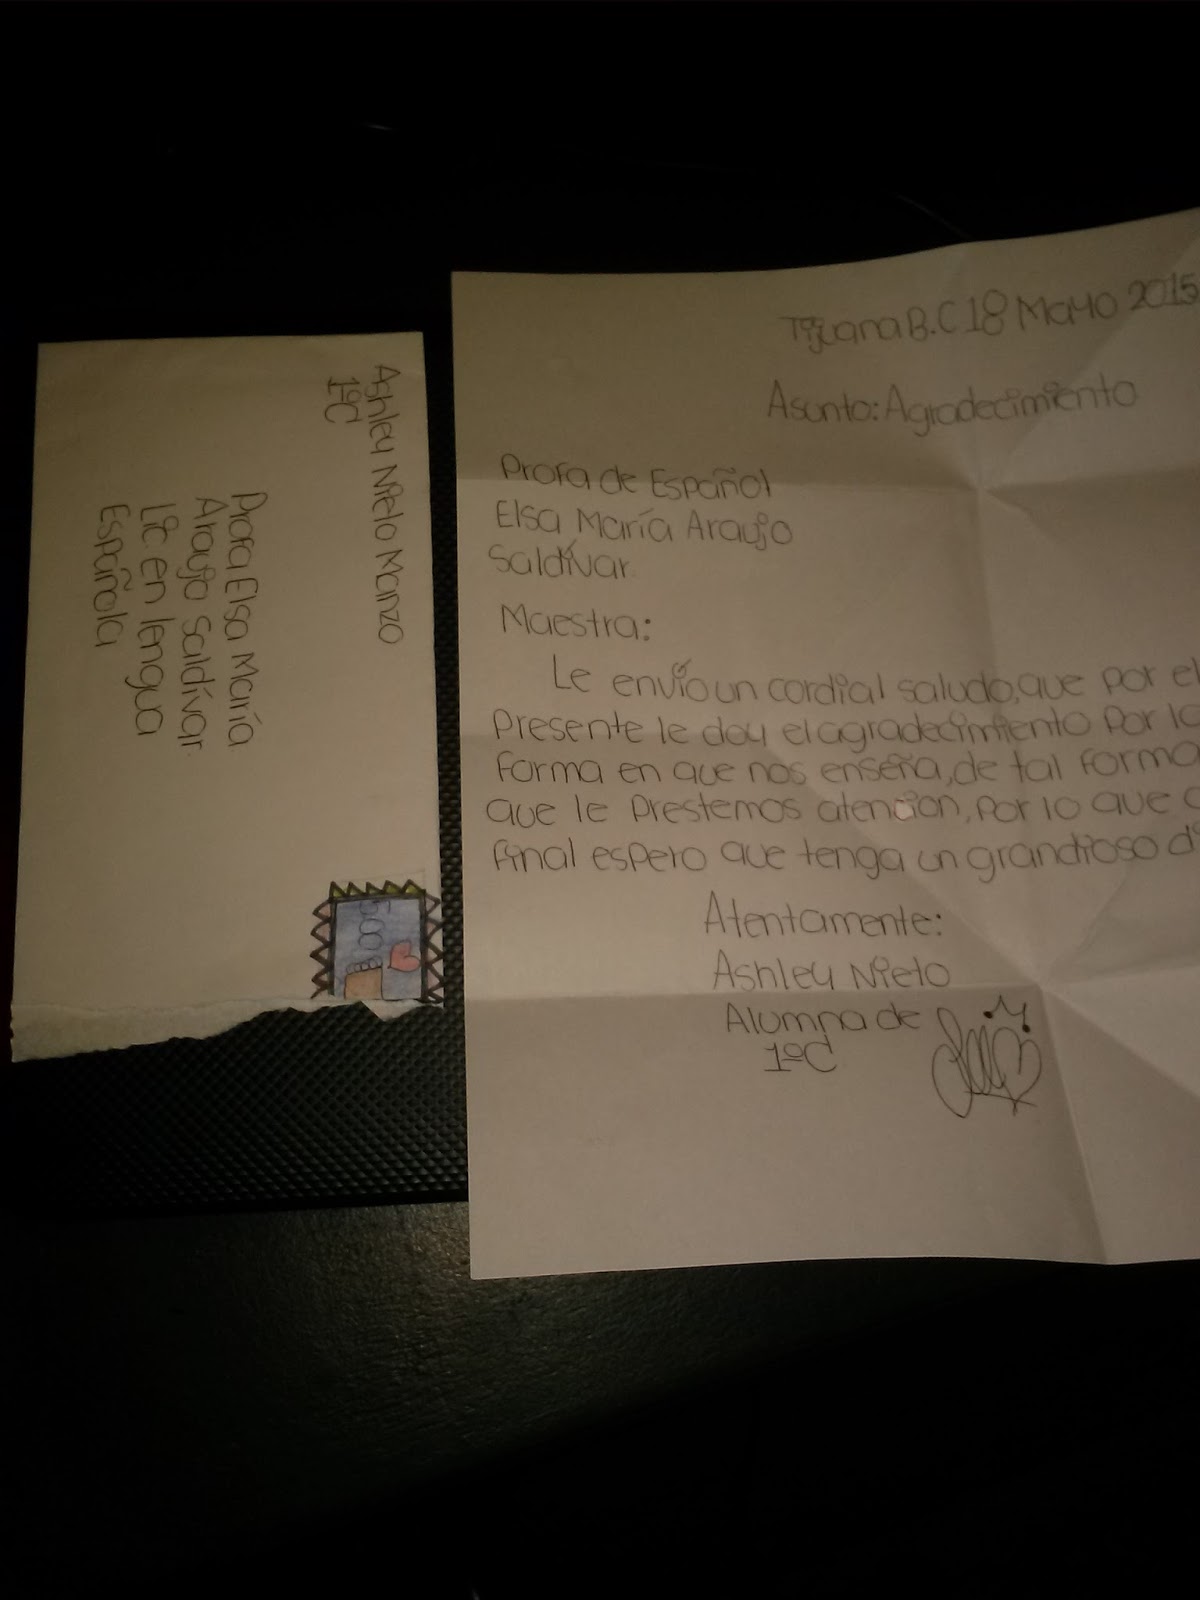 Ashley Nieto Manzo
1ºC
Profa Elsa María
Araujo Saldívar
Lic en lengua
Española
500
Tijuana B.C 18 Mayo 2015
Asunto: Agradecimiento
Profa de Español
Elsa María Araujo
Saldívar
Maestra:
Le envío un cordial saludo, que por el
presente le doy el agradecimiento por la
forma en que nos enseña, de tal forma
que le prestemos atención, por lo que
final espero que tenga un grandioso
Atentamente:
Ashley Nieto
Alumna de
1ºC